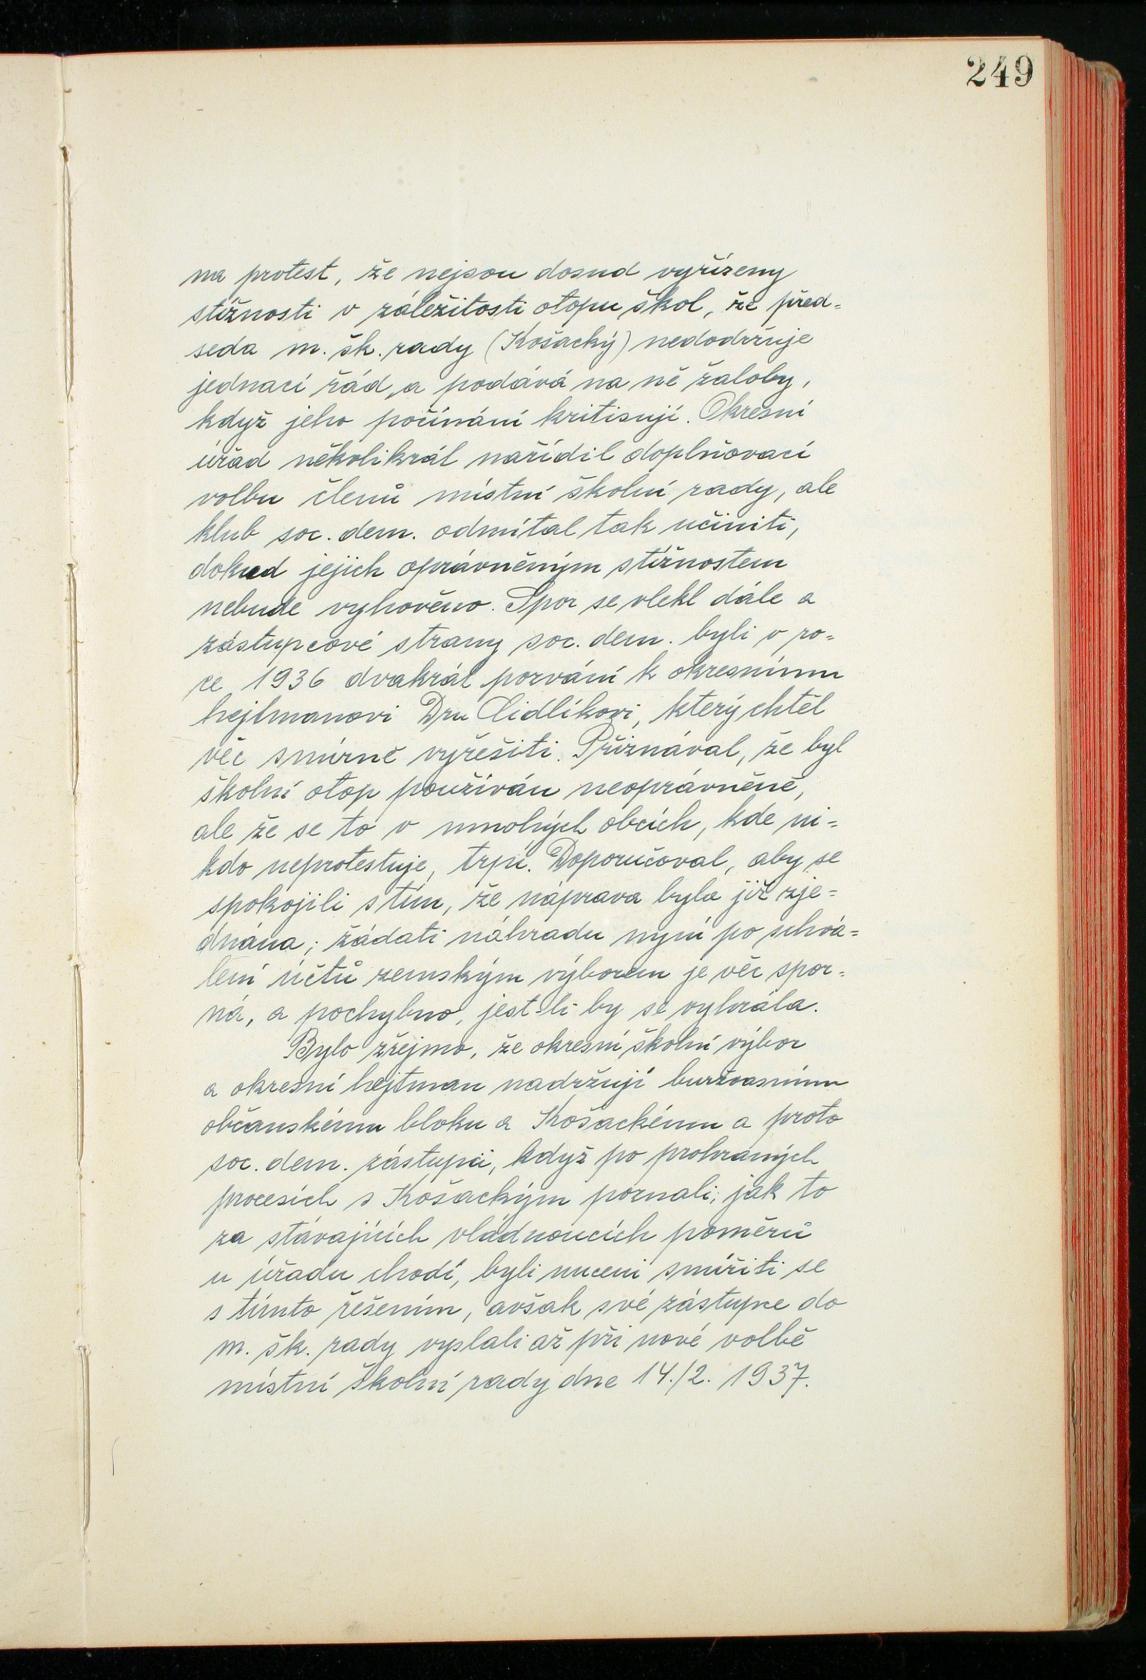 249
na protest, že nejsou dosud vyřízeny
stížnosti v záležitosti otopu škol, že před=
seda m. šk. rady (Košacký) nedodržuje
jednací řád a podává na ně žaloby,
když jeho počínání kritisují. Okresní
úřad několikrál nařídil doplňovací
volbu členů místní školní rady, ale
klub soc. dem. odmítal tak učiniti,
dokud jejich oprávněným stížnostem
nebude vyhověno. Spor se vlekl dále a
zástupcové strany soc. dem. byli v ro=
ce 1936 dvakrát pozváni k okresnímu
hejtmanovi Dru Cidlíkovi, který chtěl
věc smírně vyřešiti. Přiznával, že byl
školní otop používán neoprávněně,
ale že se to v mnohých obcích, kde ni=
kdo neprotestuje, trpí. Doporučoval, aby se
spokojili s tím, že náprava byla již zje=
dnána; žádati náhradu nyní po schvá=
lení účtů zemským výborem je věc spor=
ná, a pochybno, jest-li by se vyhrála.
Bylo zřejmo, že okresní školní výbor
a okresní hejtman nadržují buržoasnímu
občanskému bloku a Košackému a proto
soc. dem. zástupci, když po prohraných
procesích s Košackým poznali, jak to
za stávajících vládnoucích poměrů
u úřadu chodí, byli nuceni smířiti se
s tímto řešením, avšak své zástupce do
m. šk. rady vyslali až při nové volbě
místní školní rady dne 14./2. 1937.